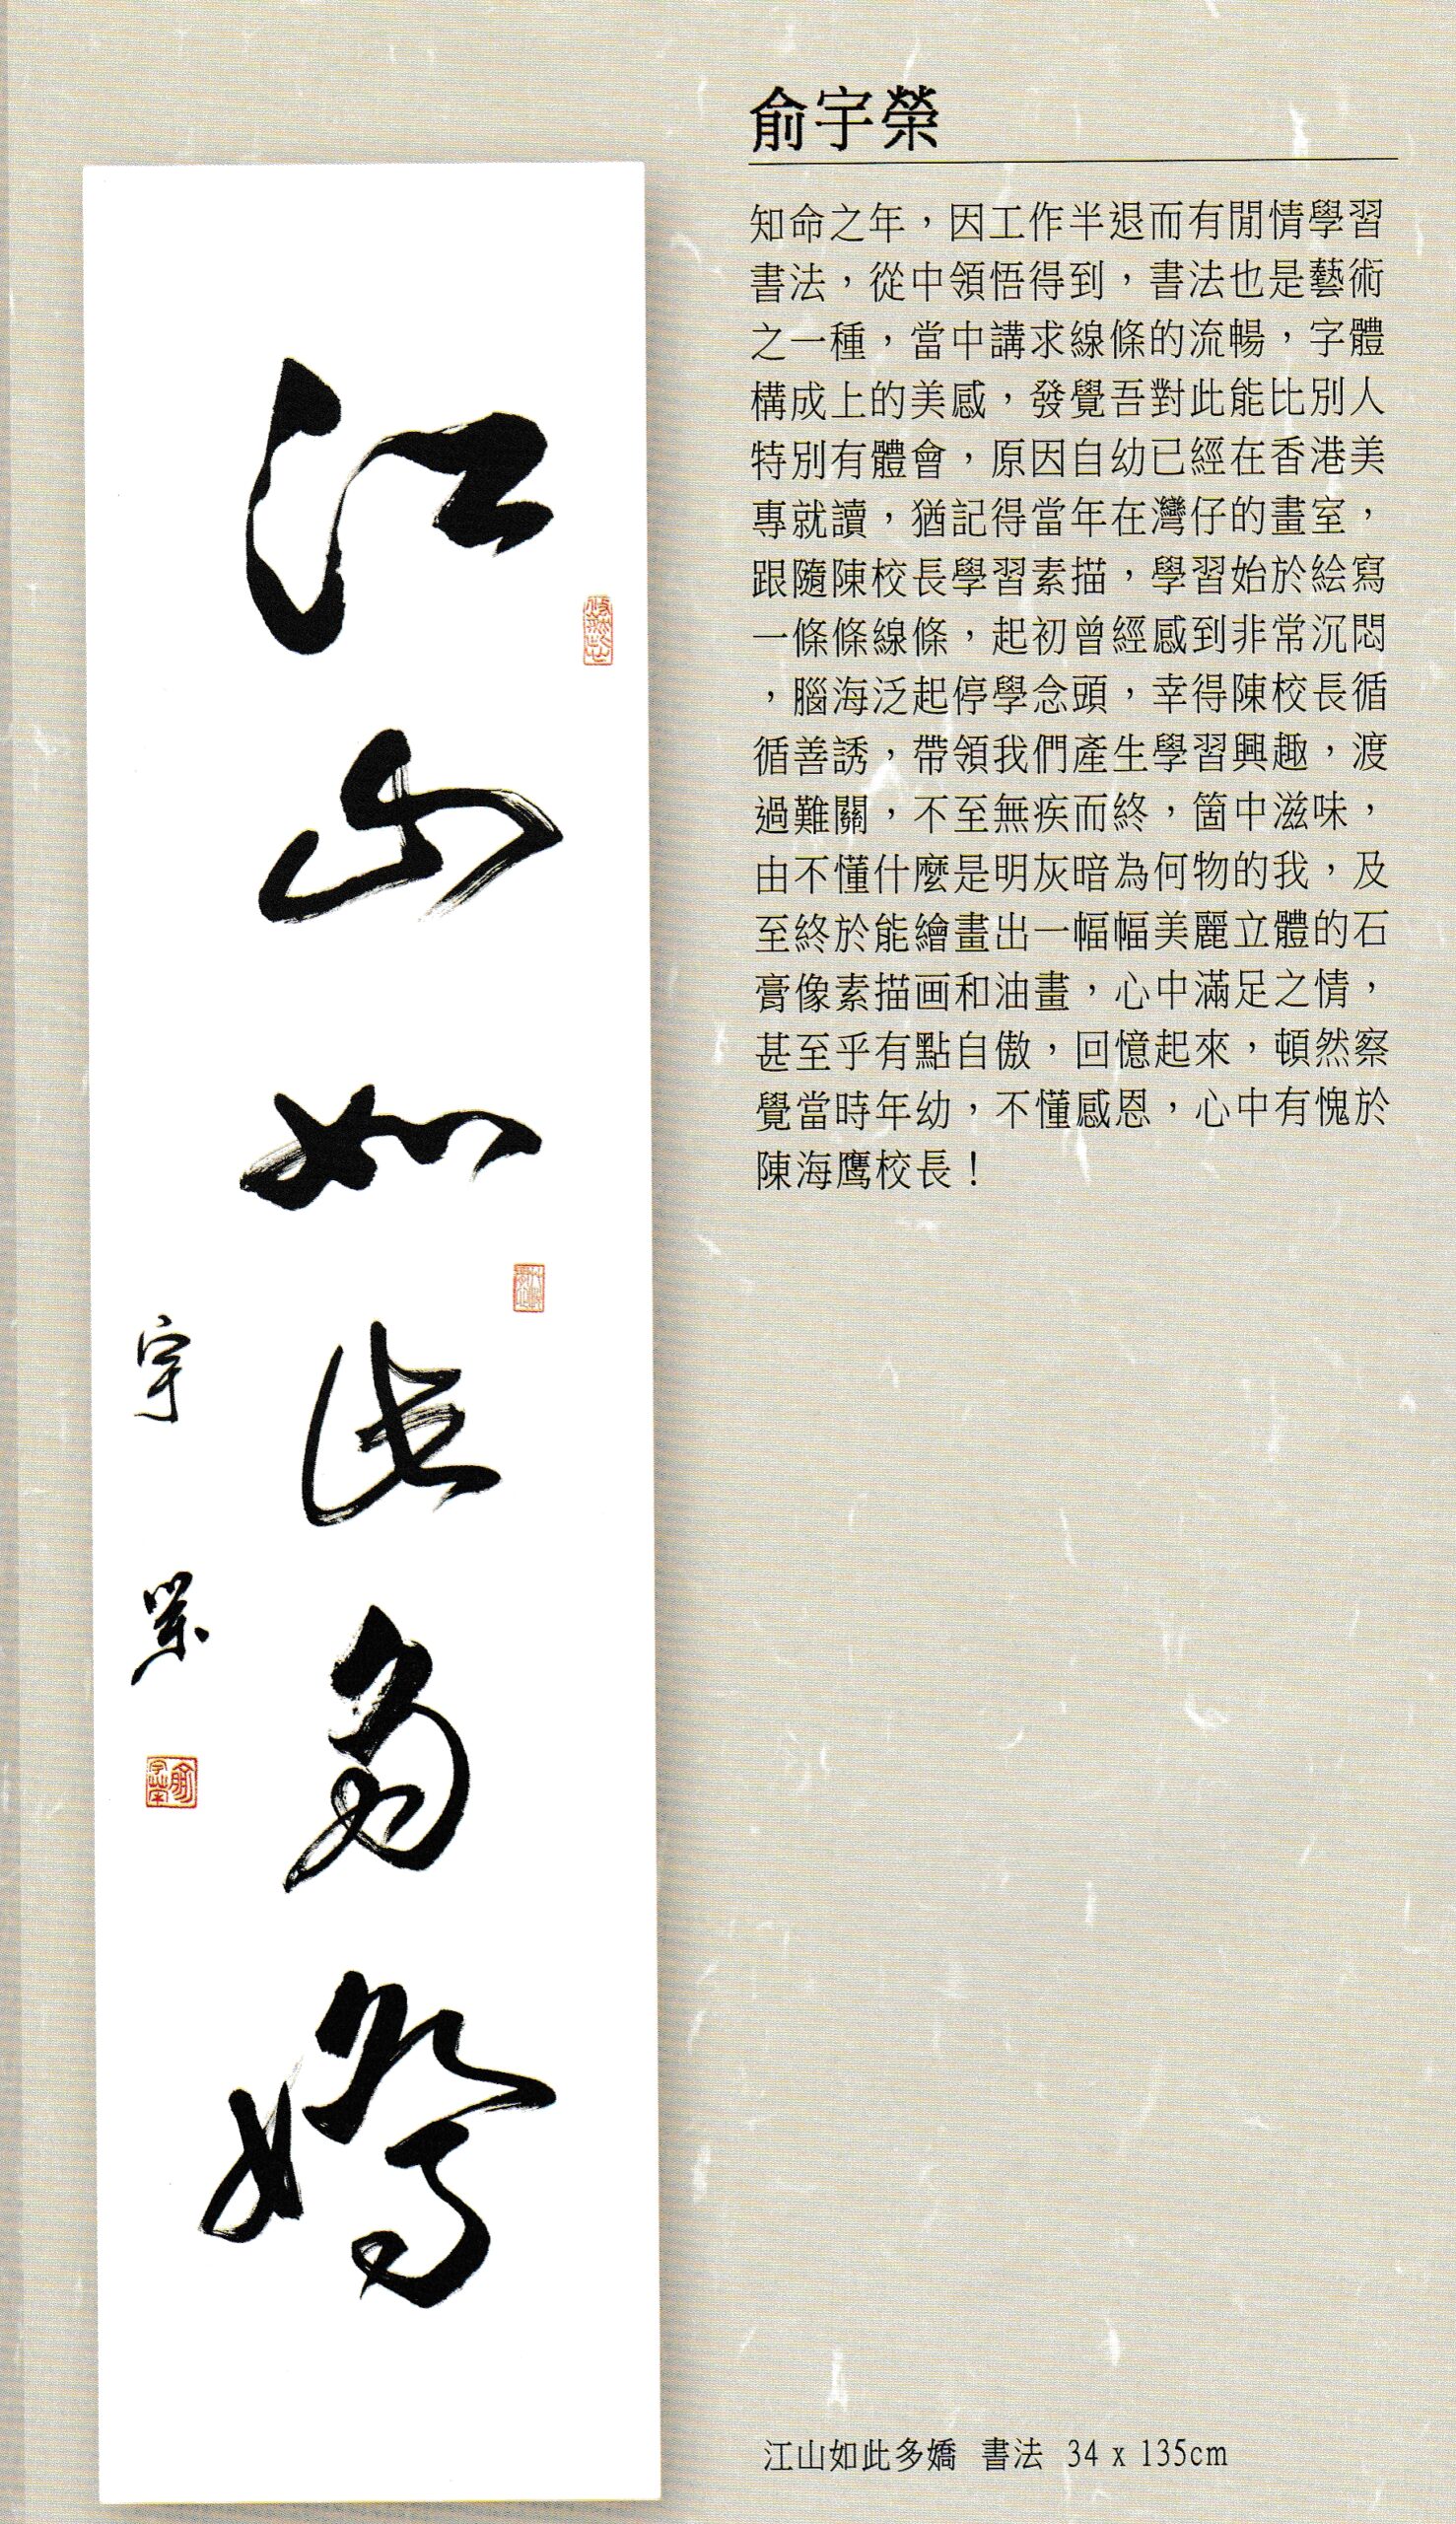 江山如此多嬌
宇榮
俞宇榮
俞宇榮
知命之年，因工作半退而有閒情學習
書法，從中領悟得到，書法也是藝術
之一種，當中講求線條的流暢，字體
構成上的美感，發覺吾對此能比別人
特別有體會，原因自幼已經在香港美
專就讀，猶記得當年在灣仔的畫室，
跟隨陳校長學習素描，學習始於絵寫
一條條線條，起初曾經感到非常沉悶
，腦海泛起停學念頭，幸得陳校長循
循善誘，帶領我們產生學習興趣，渡
過難關，不至無疾而終，箇中滋味，
由不懂什麼是明灰暗為何物的我，及
至終於能繪畫出一幅幅美麗立體的石
膏像素描画和油畫，心中滿足之情，
甚至乎有點自傲，回憶起來，頓然察
覺當時年幼，不懂感恩，心中有愧於
陳海鹰校長！
江山如此多嬌 書法 34 x 135cm